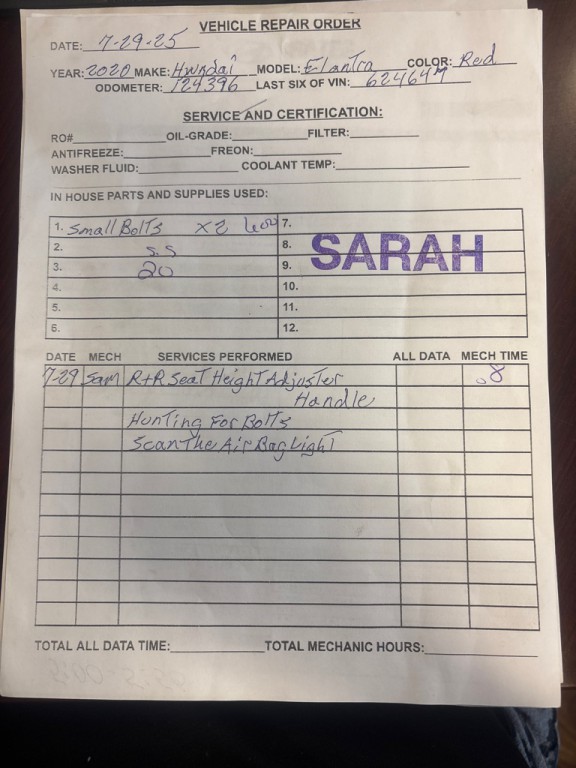 VEHICLE REPAIR ORDER
DATE: 7-29-25
YEAR: 2020 MAKE: Hyndai MODEL: Elantra COLOR: Red
ODOMETER: 124396 LAST SIX OF VIN:
SERVICE AND CERTIFICATION:
RO# OIL-GRADE: FILTER:
ANTIFREEZE: FREON:
WASHER FLUID: COOLANT TEMP:
IN HOUSE PARTS AND SUPPLIES USED:
1. Small Bolts x2 7.
2. S.S 8.
SARAH
3. 20 9.
4. 10.
5. 11.
6. 12.
DATE MECH SERVICES PERFORMED ALL DATA MECH TIME
7-29 Sam R+R Seat Height Adjuster .8
Handle
Hunting For Bolts
Scan The Air Bag Light
TOTAL ALL DATA TIME: TOTAL MECHANIC HOURS: